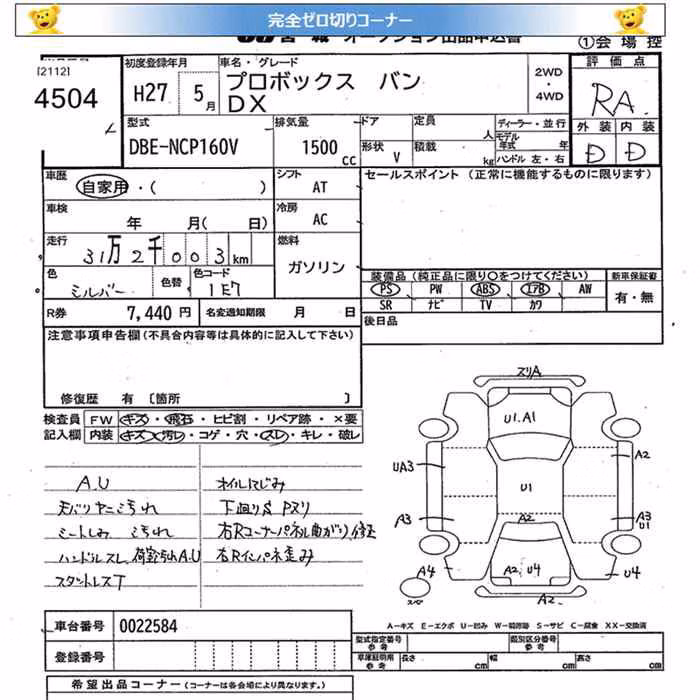 完全ゼロ切りコーナー
宮城 オークション出品申込書
①会場控
[2112]
4504
初度登録年月
H27 5月
車名・グレード
プロボックス バン
DX
2WD
・
4WD
評価点
RA
外装 内装
D D
型式
DBE-NCP160V
排気量
1500 cc
ドア
形状 V
定員 人
積載 kg
ディーラー・並行
モデル年式 年
ハンドル 左・右
車歴
自家用・( )
シフト
AT
セールスポイント (正常に機能するものに限ります)
車検
年 月( 日)
冷房
AC
走行
31万2千003km
燃料
ガソリン
色
シルバー
色替
色コード
1E7
装備品 (純正品に限り○をつけてください)
PS PW ABS エアB AW
SR ナビ TV カワ
新車保証書
有・無
R券 7,440円
名変通知期限 月 日
後日品
注意事項申告欄(不具合内容等は具体的に記入して下さい)
修復歴 有 〔箇所 〕
検査員
記入欄
FW キズ・飛石・ヒビ割・リペア跡・×要
内装 キズ・汚レ・コゲ・穴・スレ・キレ・破レ
A.U
天バリヤニ汚れ
シートしみ 汚れ
ハンドルスレ、荷室汚れA.U
スタットレスT
オイルにじみ
下廻りS Pヌリ
右Rコーナーパネル曲がり、修正
右Rインパネ歪み
スリA
U1.A1
A2
UA3
U1
A3
A3
U1
A2
A4
A2 U4
U4
スペア
A2
車台番号 0022584
登録番号
A-キズ E-エクボ U-凹み W-補修跡 S-サビ C-腐食 XX-交換済
型式指定番号
参考
類別区分番号
参考
車庫証明用
参考
長さ cm
幅 cm
高さ cm
希望出品コーナー (コーナーは各会場により異なります。)